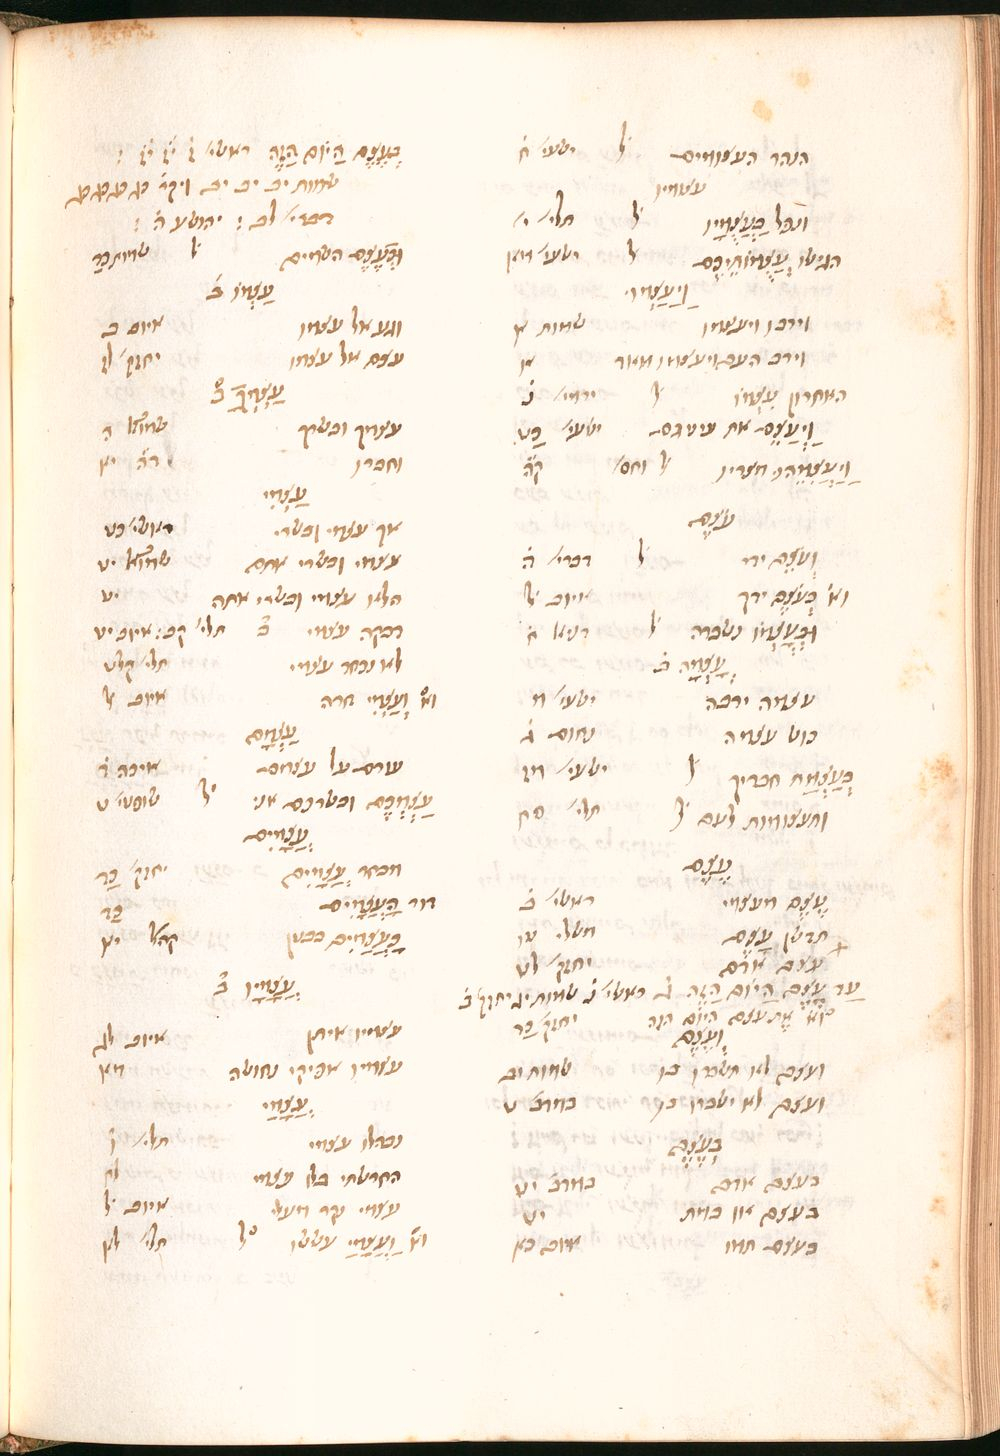 הנהר העצומים ל ישעי׳ ח
עצמו
ונפל בַּעֲצוּמָיו ל תלי׳ י׳
הגישו עֲצֻמוֹתֵיכֶם ל ישעי׳ מא
וַיַּעַצְמוּ
וירבו ויעצמו שמות א
וירב העם ויעצמו מאד א
האחרון עִצְּמוֹ ל ירמי׳ נ
וַיְעַצֵּם את עיניכם ישעי׳ כט
וַיַּעֲצִמֵהוּ מצריו ל וחס׳ קה
עֶצֶם
וְעֹצֶם ידי ל דברי׳ ח
וא׳ בְּעֹצֶם ידך איוב ל
וּבְעָצְמוֹ נשברה ל דניא ח
עָצְמָה ב
עצמה ירבה ישעי׳ מ
כוש עצמה נחום ג
בְּעָצְמַת חבריך ל ישעי׳ מז
ותעצומות לעם ל תלי׳ סח
עֶצֶם
עֶצֶם מעצמי ראשי׳ ב
תדשן עָצֶם משלי טו
עצם אדם יחזק׳ לט
עַד עֶצֶם הַיּוֹם הַזֶּה
וא׳ אֶת עצם היום הזה יחזק׳ כד
וְעֶצֶם
ועצם לא תשברו בו שמות יב
ועצם לא ישברו בו במדב׳ ט
בְּעֶצֶם
בעצם אדם במדב׳ יט
בעצם או במת יט
בעצם תמו איוב כא
בְּעֶצֶם הַיּוֹם הַזֶּה ראשי׳ ז יז יז :
שמות יב יב יב ויקר׳ כג כג כג כג
דברי׳ לב : יהושע ה :
וּכְעֶצֶם השמים ל שמות כד
עַצְמוֹ ב
וגע אל עצמו איוב ב
עצם אל עצמו יחזק׳ לז
עַצְמְךָ ב
עצמך ובשרך שמוא׳ ה
וחברו דה׳ יא
עַצְמִי
אך עצמי ובשרי ראשי׳ כט
עצמי ובשרי אתם שמוא׳ יט
הלא עצמי ובשרי אתה יט
דבקה עצמי ב תלי׳ קב : איוב יט
לא נכחד עצמי תלי׳ קלט
וא׳ וְעַצְמִי חרה איוב ל
עַצְמָם
עורם על עצמם איכה ד
עַצְמְכֶם ובשרכם אני ל שופטי׳ ט
עֲצָמִים
מבחר עֲצָמִים יחזק׳ כד
דור הָעֲצָמִים כד
כַּעֲצָמִים בבטן קהל׳ יא
עֲצָמָיו ב
עצמיו איתן איוב לג
עצמיו אפיקי נחושה מא
עֲצָמַי
נבהלו עצמי תלי׳ ו
החרשתי בלו עצמי לב
עצמי נקר מעלי איוב ל
וא׳ וַעֲצָמַי עששו ל תלי׳ לא